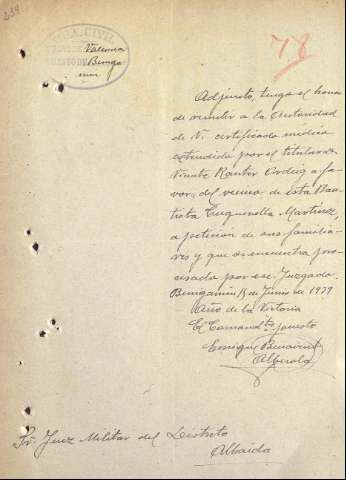 239
78
Valencia
Beniga
nim
Adjunto, tengo el honor
de remitir a la Autoridad
de V. certificado medico
extendido por el titular D.
Vicente
a fa-
vor, del vecino de esta Bau-
tista Martinez,
a petición de sus familia-
res y que se encuentra pro-
cesado por ese Juzgado.
Benigánim Junio de 1939
Año de la Victoria
El Comandte. puesto
Enrique Benavent
Alberola
Sr. Juez Militar del Distrito
Albaida